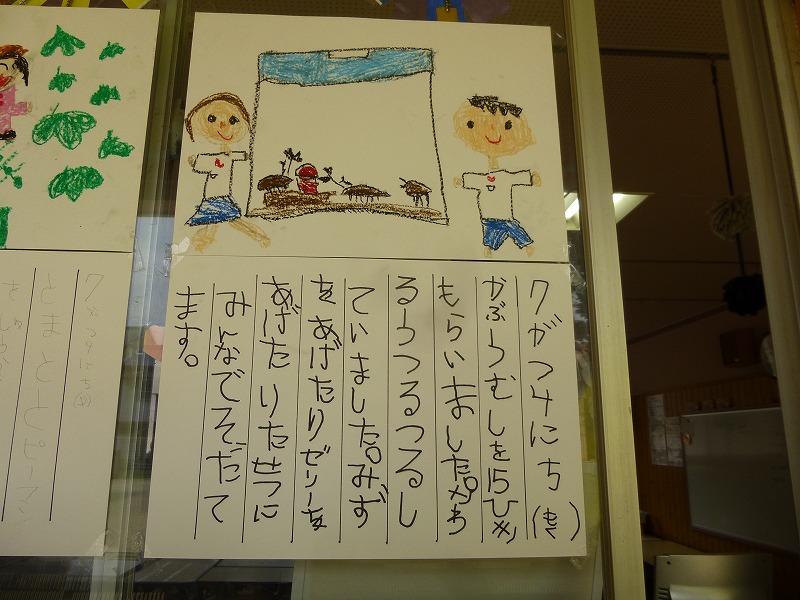 7がつ4にち(もく)
かぶうむしを15ひき
もらいました。かわ
るうつるつるし
ていました。みず
をあげたりゼリーを
あげたりたせつに
みんなでそだて
ます。
とまととピーマン